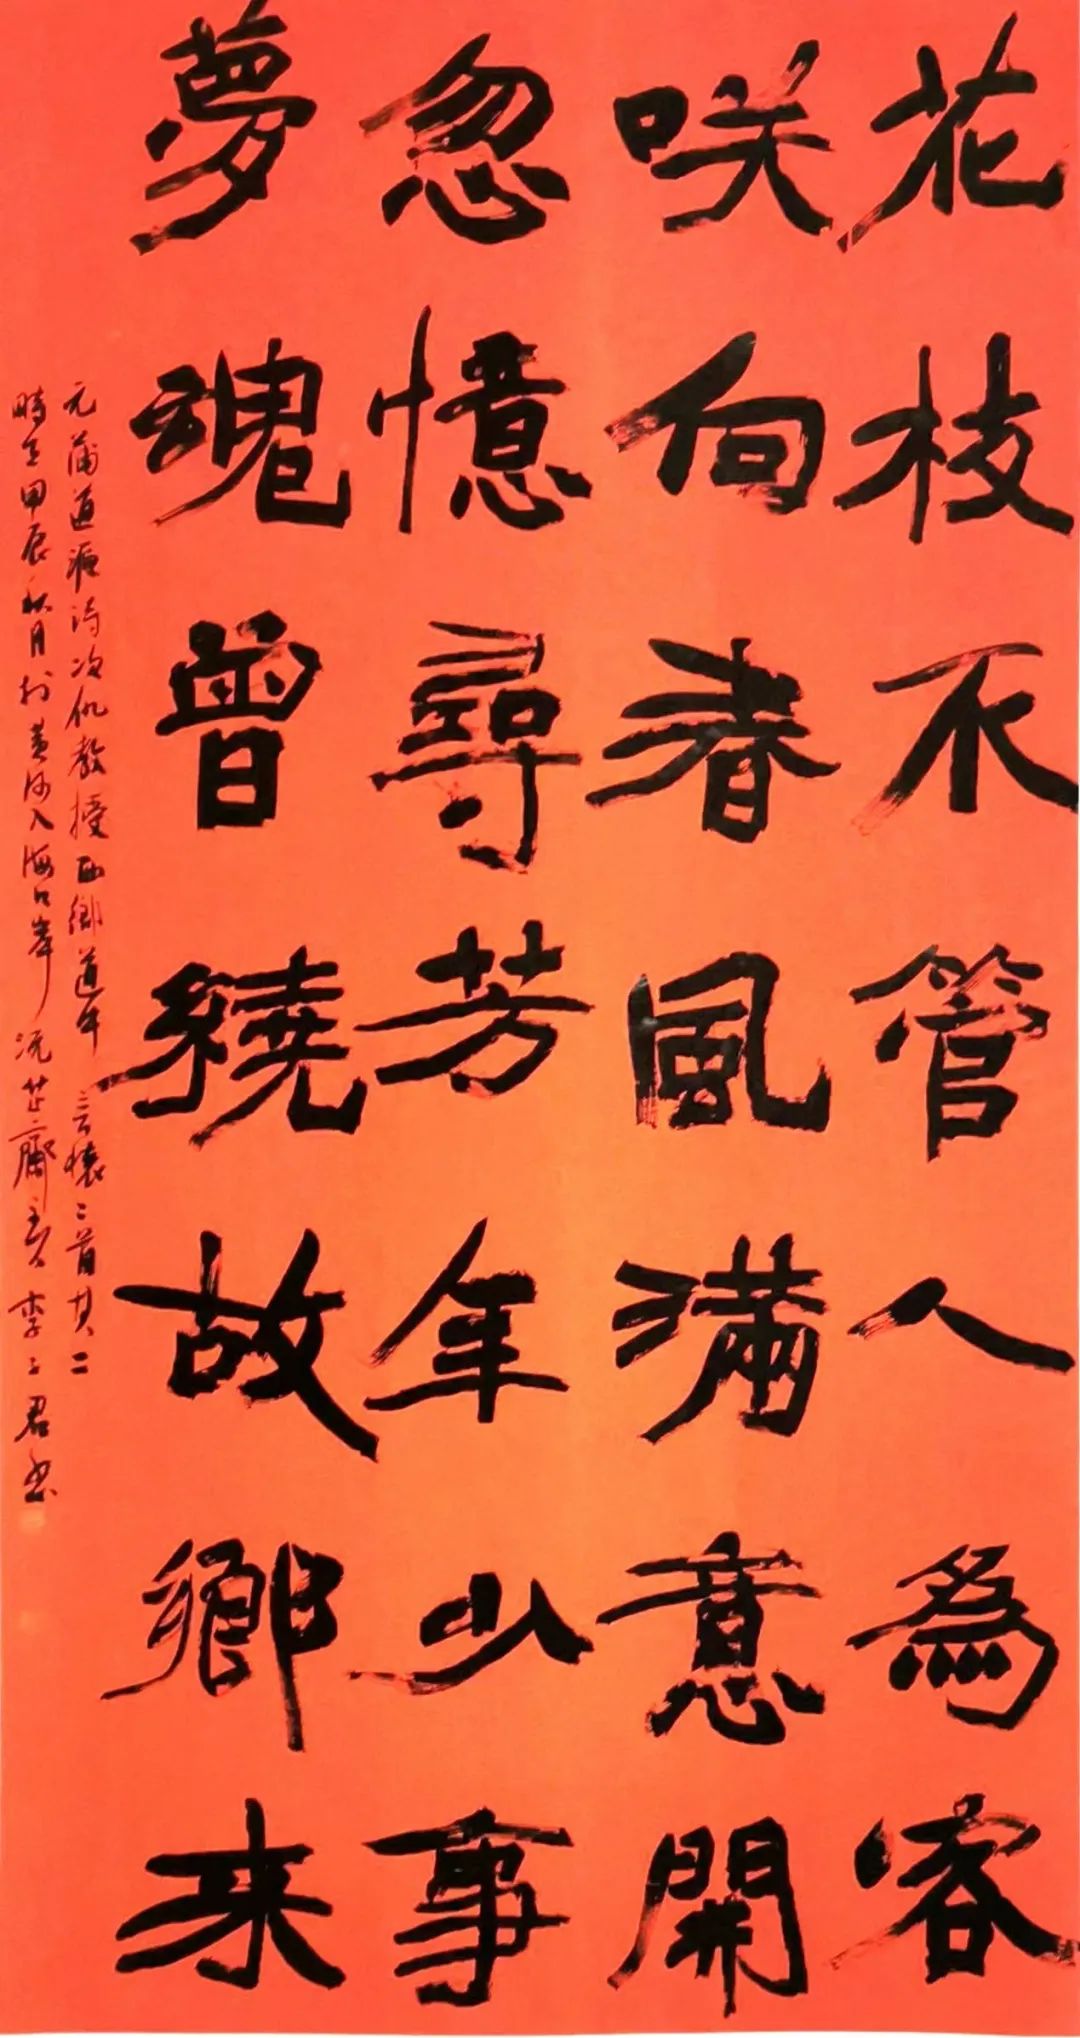 花枝不管人為客
咲向春風滿意開
忽憶尋芳年少事
夢魂曾繞故鄉来
元蒲道源詩次仇教授西鄉道中言懷二首其二
時在甲辰秋月於黃河入海口岸沅芷齋主人李子君书